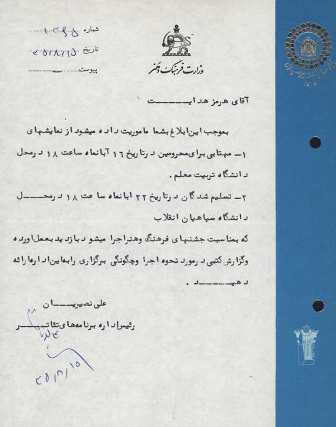 شماره ۱۰۳۹۵
تاریخ ۳۵/۸/۱۵
پیوست
وزارت فرهنگ و هنر
آقای هرمز هدایت
بموجب این ابلاغ بشما ماموریت داده میشود از نمایشهای
۱- مهتابی برای محرومین در تاریخ ۱۶ آبانماه ساعت ۱۸ در محل
دانشگاه تربیت معلم.
۲- تسلیم شدگان در تاریخ ۲۲ ابانماه ساعت ۱۸ در محل
دانشگاه سپاهیان انقلاب
که بمناسبت جشنهای فرهنگ وهنر اجرا میشود بازدید بعمل اورده
وگزارش کتبی در مورد نحوه اجرا وچگونگی برگزاری را به این اداره ارائه
دهید.
علی نصیریان
رئیس اداره برنامه‌های تئاتر
۳۵/۸/۱۵